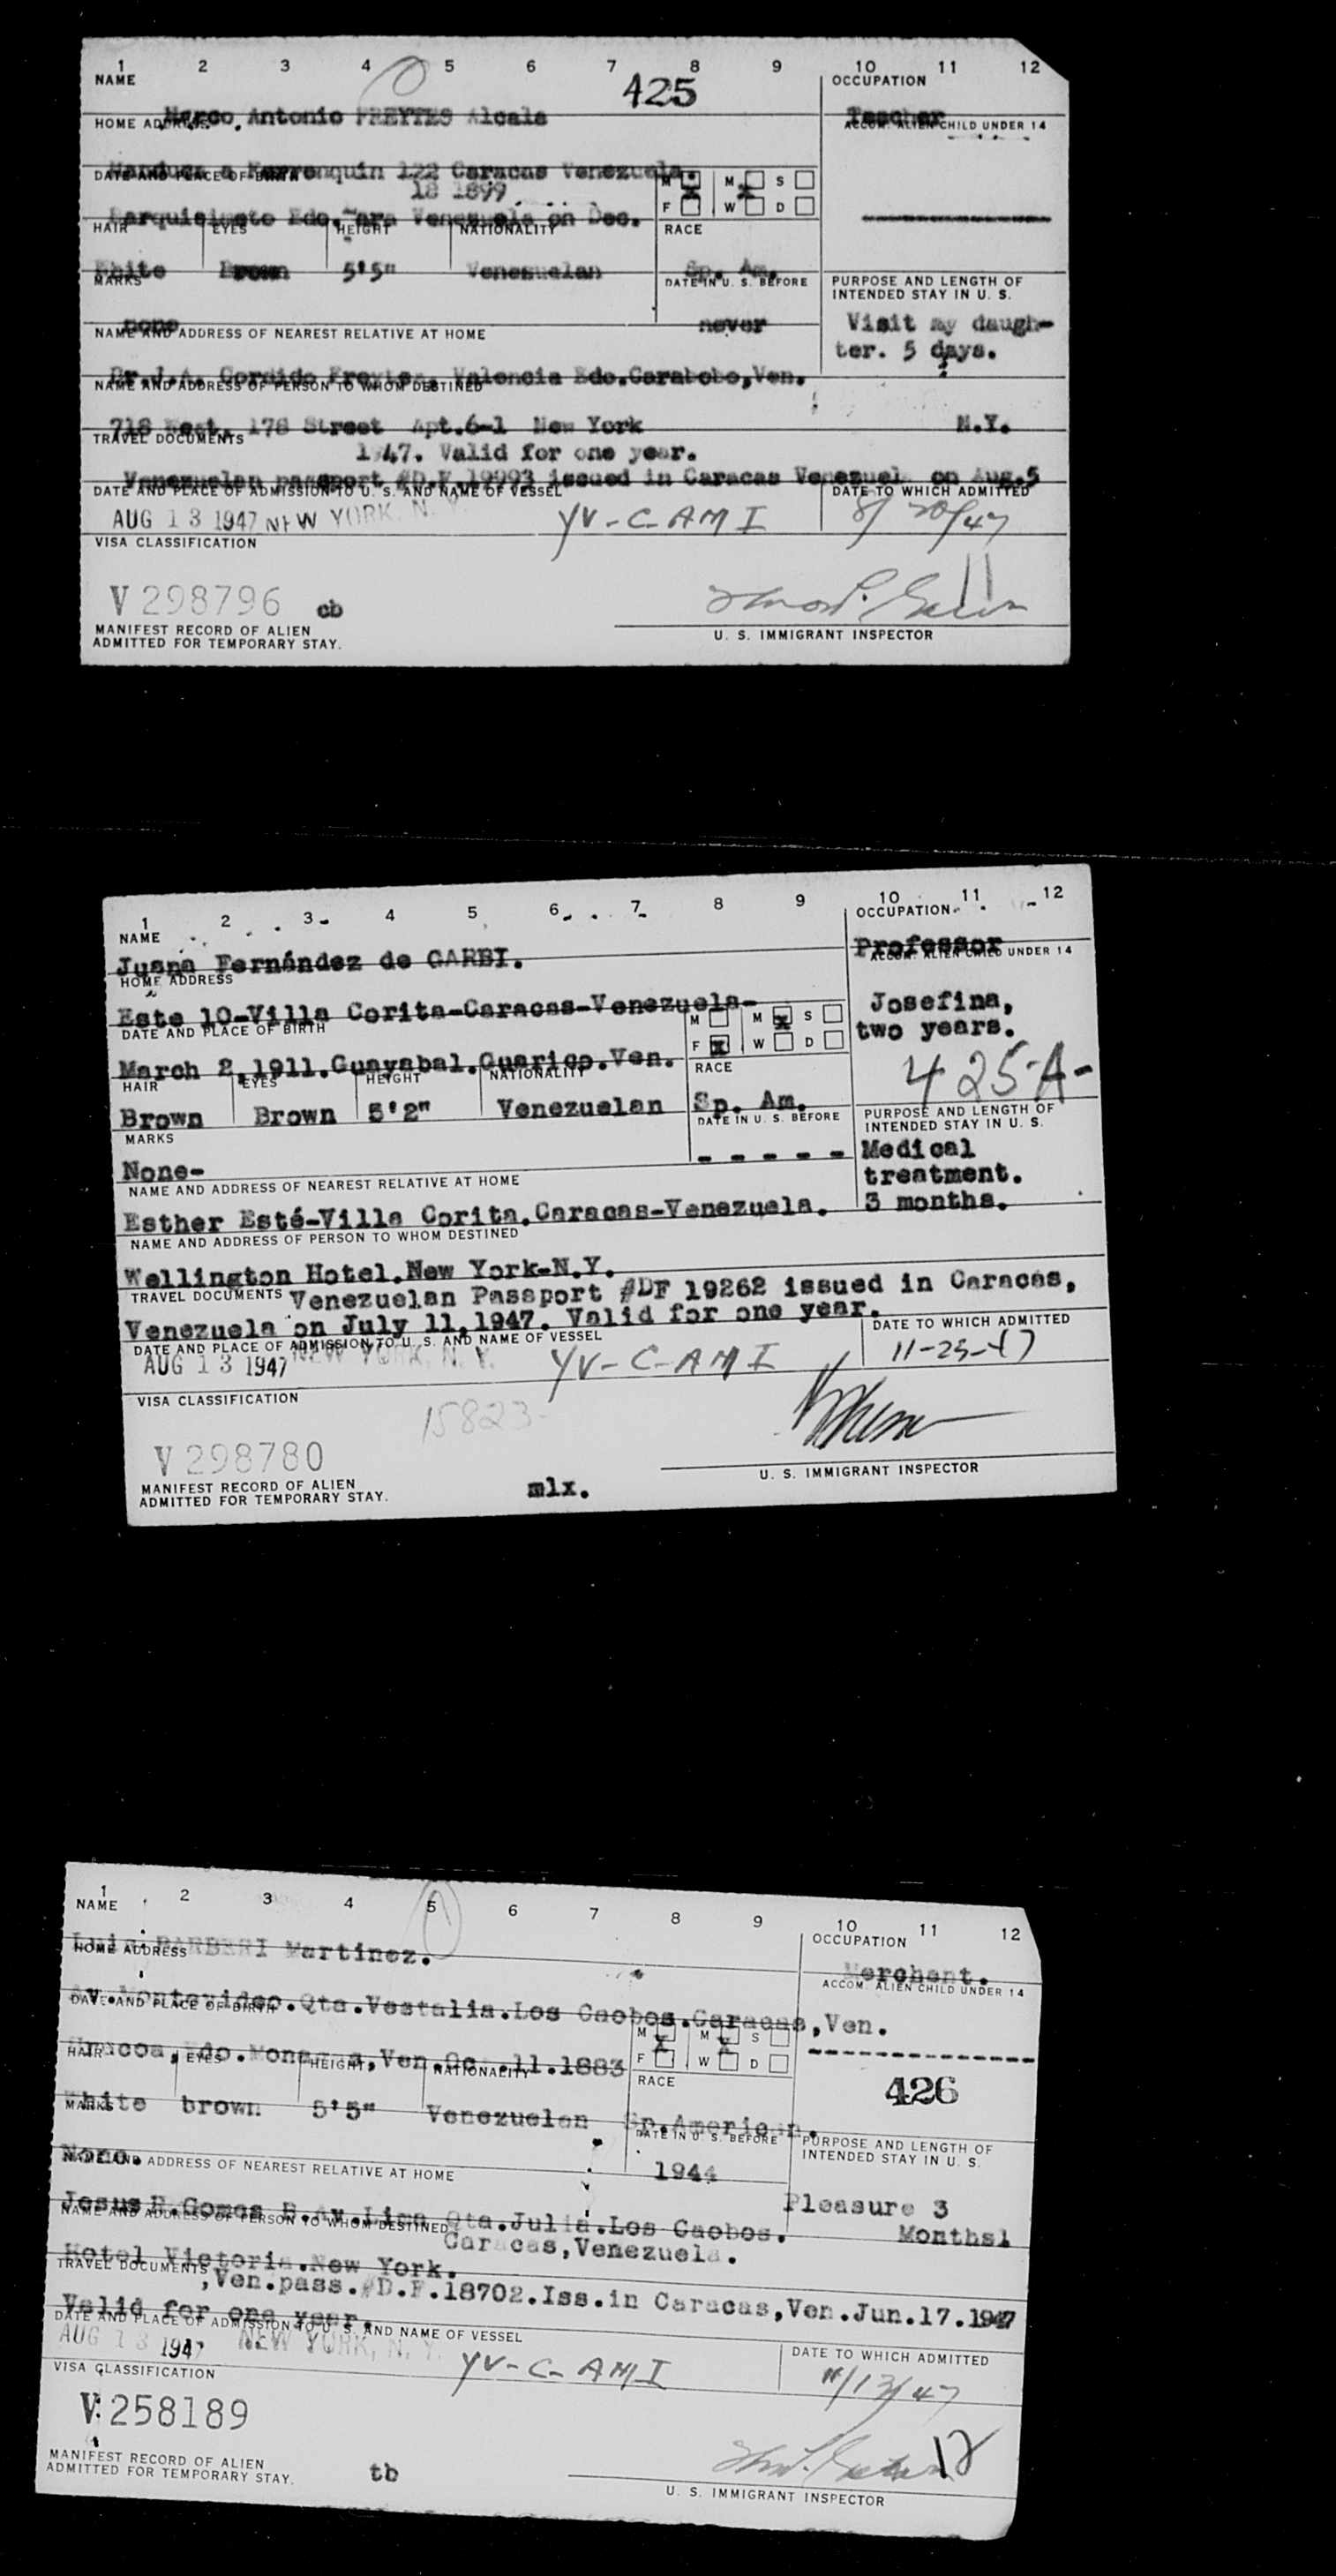 1 2 3 4 5 6 7 8 9 10 11 12
NAME 425 OCCUPATION
Marco Antonio FREYTES Alcala Teacher
HOME ADDRESS ACCOM. ALIEN CHILD UNDER 14
Manduca a Ferrenquin 122 Caracas Venezuela.
DATE AND PLACE OF BIRTH M M S
18 1899
F W D
Barquisimeto Edo. Lara Venezuela on Dec.
HAIR EYES HEIGHT NATIONALITY RACE
White Brown 5'5" Venezuelan Sp. Am.
MARKS DATE IN U. S. BEFORE PURPOSE AND LENGTH OF
INTENDED STAY IN U. S.
none never Visit my daugh-
NAME AND ADDRESS OF NEAREST RELATIVE AT HOME ter. 5 days.
Dr.J.A. Cordido Freytes, Valencia Edo.Carabobo,Ven.
NAME AND ADDRESS OF PERSON TO WHOM DESTINED
718 West. 178 Street Apt.6-1 New York N.Y.
TRAVEL DOCUMENTS
1947. Valid for one year.
Venezuelan passport #D.F.19993 issued in Caracas Venezuela on Aug.5
DATE AND PLACE OF ADMISSION TO U. S. AND NAME OF VESSEL DATE TO WHICH ADMITTED
AUG 13 1947 NEW YORK, N. Y. YV-C-AMI 8/20/47
VISA CLASSIFICATION
11
V 298796 cb
MANIFEST RECORD OF ALIEN
ADMITTED FOR TEMPORARY STAY. U. S. IMMIGRANT INSPECTOR
1 2 3 4 5 6 7 8 9 10 11 12
NAME OCCUPATION
Juana Fernández de GARBI. Professor
HOME ADDRESS ACCOM. ALIEN CHILD UNDER 14
Este 10-Villa Corita-Caracas-Venezuela- Josefina,
DATE AND PLACE OF BIRTH M M S two years.
F W D
March 2,1911.Guayabal.Guarico.Ven. 425-A-
HAIR EYES HEIGHT NATIONALITY RACE
Brown Brown 5'2" Venezuelan Sp. Am.
MARKS DATE IN U. S. BEFORE PURPOSE AND LENGTH OF
INTENDED STAY IN U. S.
None- - - - - - Medical
NAME AND ADDRESS OF NEAREST RELATIVE AT HOME treatment.
Esther Esté-Villa Corita.Caracas-Venezuela. 3 months.
NAME AND ADDRESS OF PERSON TO WHOM DESTINED
Wellington Hotel.New York-N.Y.
TRAVEL DOCUMENTS Venezuelan Passport #DF 19262 issued in Caracas,
Venezuela on July 11,1947. Valid for one year.
DATE AND PLACE OF ADMISSION TO U. S. AND NAME OF VESSEL DATE TO WHICH ADMITTED
AUG 13 1947 NEW YORK, N. Y. YV-C-AMI 11-23-47
VISA CLASSIFICATION
15823-
V 298780
MANIFEST RECORD OF ALIEN
ADMITTED FOR TEMPORARY STAY. mlx. U. S. IMMIGRANT INSPECTOR
1 2 3 4 5 6 7 8 9 10 11 12
NAME OCCUPATION
Luis BARBERI Martinez. Merchant.
HOME ADDRESS ACCOM. ALIEN CHILD UNDER 14
Av.Montevideo.Qta.Vestalia.Los Caobos.Caracas,Ven.
DATE AND PLACE OF BIRTH M M S
F W D
Uracoa, Edo.Monagas,Ven.Oc .11.1883 426
HAIR EYES HEIGHT NATIONALITY RACE
White brown 5'5" Venezuelan Sp.American.
MARKS DATE IN U. S. BEFORE PURPOSE AND LENGTH OF
INTENDED STAY IN U. S.
None. 1944
NAME AND ADDRESS OF NEAREST RELATIVE AT HOME Pleasure 3
Jesus R.Gomes B.Av.Lima Qta.Julia.Los Caobos. Months1
NAME AND ADDRESS OF PERSON TO WHOM DESTINED Caracas,Venezuela.
Hotel Victoria.New York.
TRAVEL DOCUMENTS ,Ven.pass.#D.F.18702.Iss.in Caracas,Ven.Jun.17.1947
Valid for one year.
DATE AND PLACE OF ADMISSION TO U. S. AND NAME OF VESSEL DATE TO WHICH ADMITTED
AUG 13 1947 NEW YORK, N. Y. YV-C-AMI 11/13/47
VISA CLASSIFICATION
V 258189 12
MANIFEST RECORD OF ALIEN
ADMITTED FOR TEMPORARY STAY. tb U. S. IMMIGRANT INSPECTOR